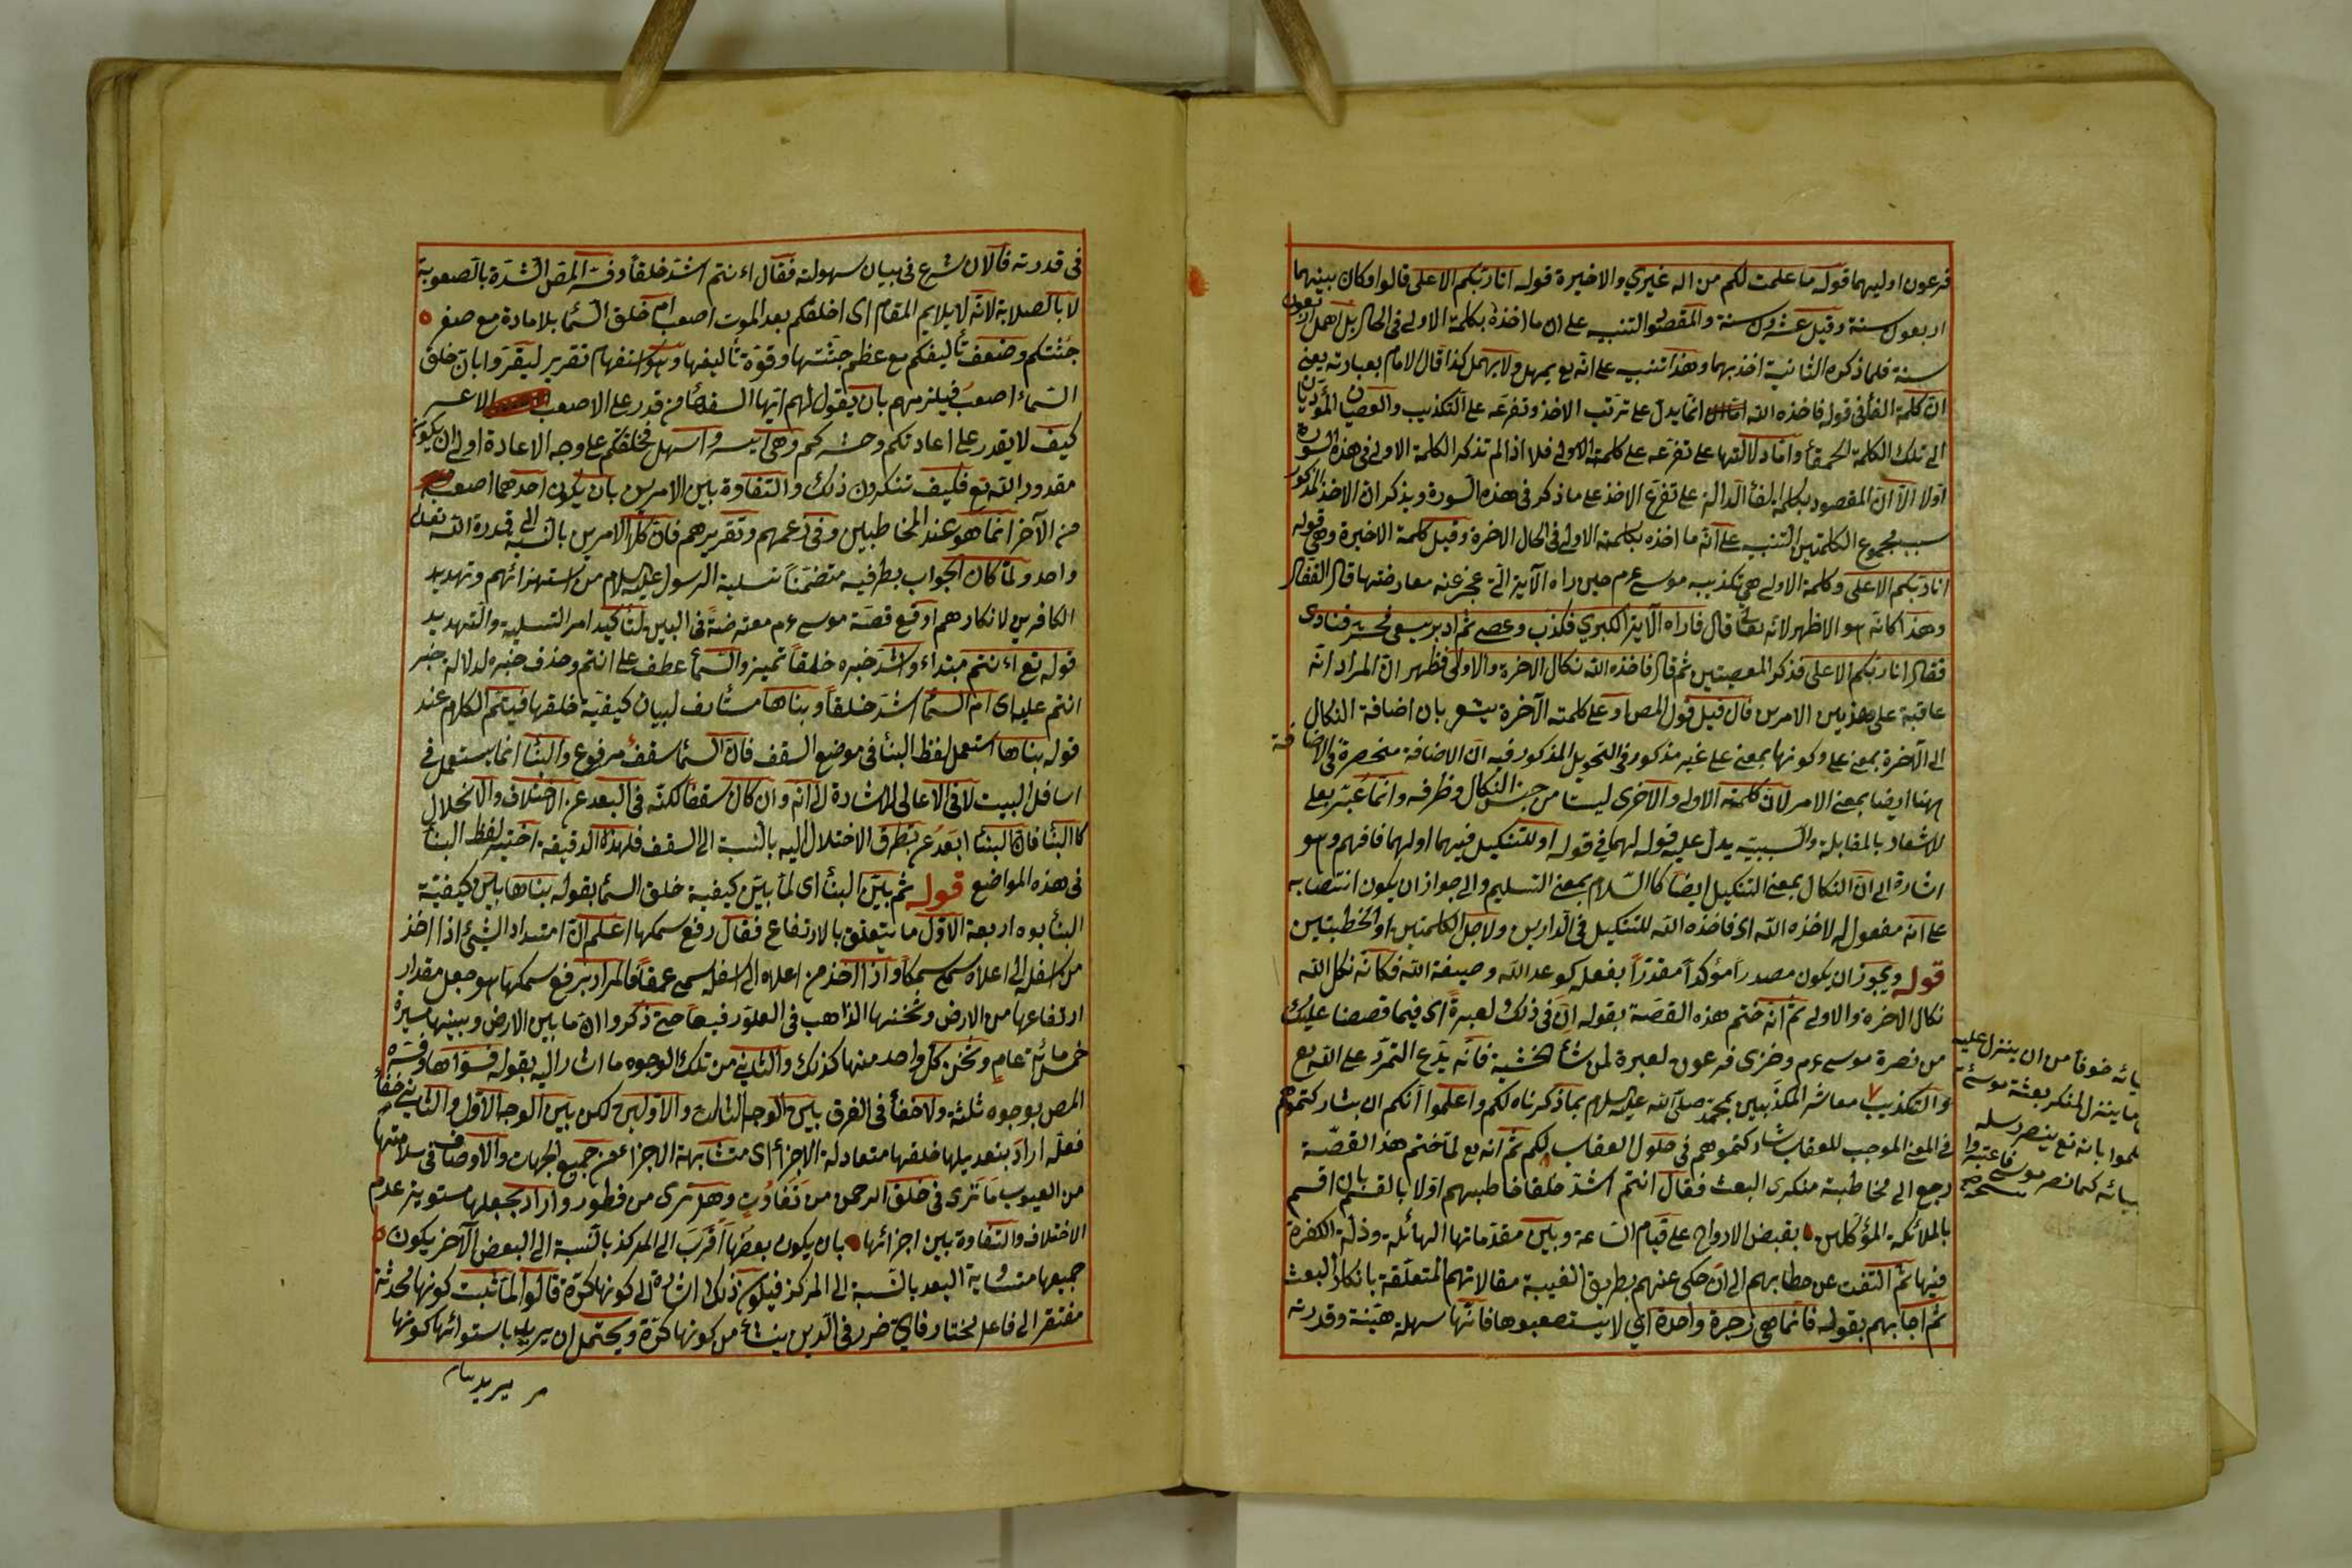 فرعون اوليهما قوله ما علمت لكم من اله غيري والاخيرة قوله انا ربكم الاعلى قالوا وكان بينهما
اربعون سنة وقيل عشرون سنة والمقصود التنبيه على ان ما اخذه بكلمته الاولى في الحال بل امهل اربعون
سنة فلما ذكره الثانية اخذ بهما وهذا تنبيه على انه تع يمهل ولا يهمل كذا قال الامام بعبارته يعني
ان كلمة الفاء في قوله فاخذه الله انما يدل على ترتب الاخذ وتفرعه على التكذيب والعصيان المؤديان
الى تلك الكلمة الحمقاء واما دلالتها على تفرعه على كلمة الاولى فلا اذ لم تذكر الكلمة الاولى في هذه السورة
اولا الا ان المقصود بكلمة الفاء الدالة على تفرع الاخذ على ما ذكر في هذه السورة ويذكر ان الاخذ المذكور
بسبب مجموع الكلمتين التنبيه على انه ما اخذه بكلمته الاولى في الحال الاخرة وقيل كلمة الاخيرة وهي قوله
انا ربكم الاعلى وكلمة الاولى هي تكذيبه موسى ء م حين راه الآية التي عجز عنه معارضتها قال القفال
وهذا كانه هو الاظهر لانه تعالى قال فاراه الآية الكبرى فكذب وعصى ثم ادبر يسعى فحشر فنادى
فقال انا ربكم الاعلى فذكر المعصيتين ثم قال فاخذه الله نكال الاخرة والاولى فظهر ان المراد انه
عاقبه على هذين الامرين فان قيل قول المص او على كلمته الآخرة يشعر بان اضافة النكال
الى الآخرة بمعنى على وكونها بمعنى على غير مذكور في النحو بل المذكور فيه ان الاضافة منحصرة في الاضافة
ههنا ايضا بمعنى الامر لان كلمته الاولى والاخرى ليستا من جنس النكال وظرفه وانما عبر بعلى
للاشعار بالمقابلة والسببية يدل عليه قوله لهما في قوله او للتنكيل فيهما اولهما فافهم وهو
اشارة الى ان النكال بمعنى التنكيل ايضا كالسلام بمعنى التسليم والى جواز ان يكون انتصابه
على انه مفعول له لاخذه الله اى فاخذه الله للتنكيل في الدارين ولاجل الكلمتين او الخطبتين
قوله ويجوز ان يكون مصدرا مؤكدا مقدرا بفعله كوعد الله وصبغة الله فكانه نكل الله
نكال الاخرة والاولى ثم انه ختم هذه القصة بقوله ان في ذلك لعبرة اى فيما قصصنا عليك
من نصرة موسى ء م وخزى فرعون لعبرة لمن شأنه الخشية فانه يدع التمرد على الله تع
والتكذيب معاشر المكذبين بمحمد صلى الله عليه السلام بما ذكرناه لكم واعلموا انكم ان شاركتموهم
في المعنى الموجب للعقاب شاركتموهم في حلول العقاب لكم ثم انه تع لما ختم هذا القصة
رجع الى مخاطبة منكرى البعث فقال انتم اشد خلقا فخاطبهم اولا بالقسم بان اقسم
بالملائكة المؤكلين بقبض الارواح على قيام الساعة وبين مقدماتها الهائلة وذلة الكفرة
فيها ثم التفت عن خطابهم الى ان حكى عنهم بطريق الغيبة مقالاتهم المتعلقة بانكار البعث
ثم اجابهم بقوله فانما هي زجرة واحدة اي لا تستصعبوها فانها سهلة هينة وقدرته
خوفا من ان ينزل عليه
ما ينزل المنكر بعثة موسى
بانه تع ينصر رسله
كما نصر موسى فاعتبروا
في قدرته فالان شرع في بيان سهولته فقال ءانتم اشد خلقا وفسر المص الشدة بالصعوبة
لا بالصلابة لانه لا يلايم المقام اى اخلقكم بعد الموت اصعب ام خلق السماء بلا مادة مع صغر
جثتكم وضعف تأليفكم مع عظم جثتها وقوة تأليفها وهو استفهام تقرير ليقروا بان خلق
السماء اصعب فيلزمهم بان يقول لهم ايها السفهاء من قدر على الاصعب الاعسر
كيف لا يقدر على اعادتكم وحشركم وهي ايسر واسهل فخلقكم على وجه الاعادة اولى ان يكون
مقدور الله تع فكيف تنكرون ذلك والتفاوة بين الامرين بان يكون احدهما اصعب
من الآخر انما هو عند المخاطبين وفي زعمهم وتقريرهم فان كلا الامرين بالنسبة الى قدرة الله تعالى
واحد ولما كان الجواب بطرفيه متضمنا تسلية الرسول عليه السلام من استهزائهم وتهديد
الكافرين لانكارهم اوقع قصة موسى ء م معترضة في البين لتاكيد امر التسلية والتهديد
قوله تع ءانتم مبتداء واشد خبره خلقا تميز والسماء عطف على انتم وحذف خبره لدلالة خبر
انتم عليه اى ام السماء اشد خلقا وبناها مستأنف لبيان كيفية خلقها فيتم الكلام عند
قوله بناها استعمل لفظ البناء في موضع السقف فان السماء سقف مرفوع والبناء انما يستعمل في
اسافل البيت لا في الاعالى للاشارة الى انه وان كان سقفا لكنه في البعد عن الاختلاف والانحلال
كالبناء فان البناء ابعد عن تطرق الاختلال اليه بالنسبة الى السقف فلهذه الدقيقة اختير لفظ البناء
في هذه المواضع قوله ثم بين البناء اى لما بين كيفية خلق السماء بقوله بناها بين كيفية
البناء بوه اربعة الاول ما يتعلق بالارتفاع فقال رفع سمكها اعلم ان امتداد الشيء اذا اخذ
من اسفله الى اعلاه سمى سمكا واذا اخذ من اعلاه الى اسفله سمى عمقا فالمراد برفع سمكها هو جعل مقدار
ارتفاعها من الارض وثخنها الذاهب في العلو رفيعا حتى ذكروا ان ما بين الارض وبينها مسيرة
خمسمائة عام وثخن كل واحد منها كذلك والثاني من تلك الوجوه ما اشار اليه بقوله فسواها وفسره
المص بوجوه ثلثة ولا خفاء في الفرق بين الوجه الثالث والاولين لكن بين الوجه الاول والثاني خفاء
فعله اراد بتعديلها خلقها متعادلة الاجزاء اى متشابهة الاجزاء عن جميع الجهات والاوصاف في سلامتها
من العيوب ما ترى في خلق الرحمن من تفاوت وهل ترى من فطور واراد بجعلها مستوية عدم
الاختلاف والتفاوة بين اجزائها بان يكون بعضها اقرب الى المركز بالنسبة الى البعض الآخر يكون
جميعها متشابة البعد بالنسبة الى المركز فيكون ذلك اشارة الى كونها كرة قالوا لما ثبت كونها محدثة
مفتقر الى فاعل مختار فاي ضرر في الدين ينشأ من كونها كرة ويحتمل ان يريد باستوائها كونها